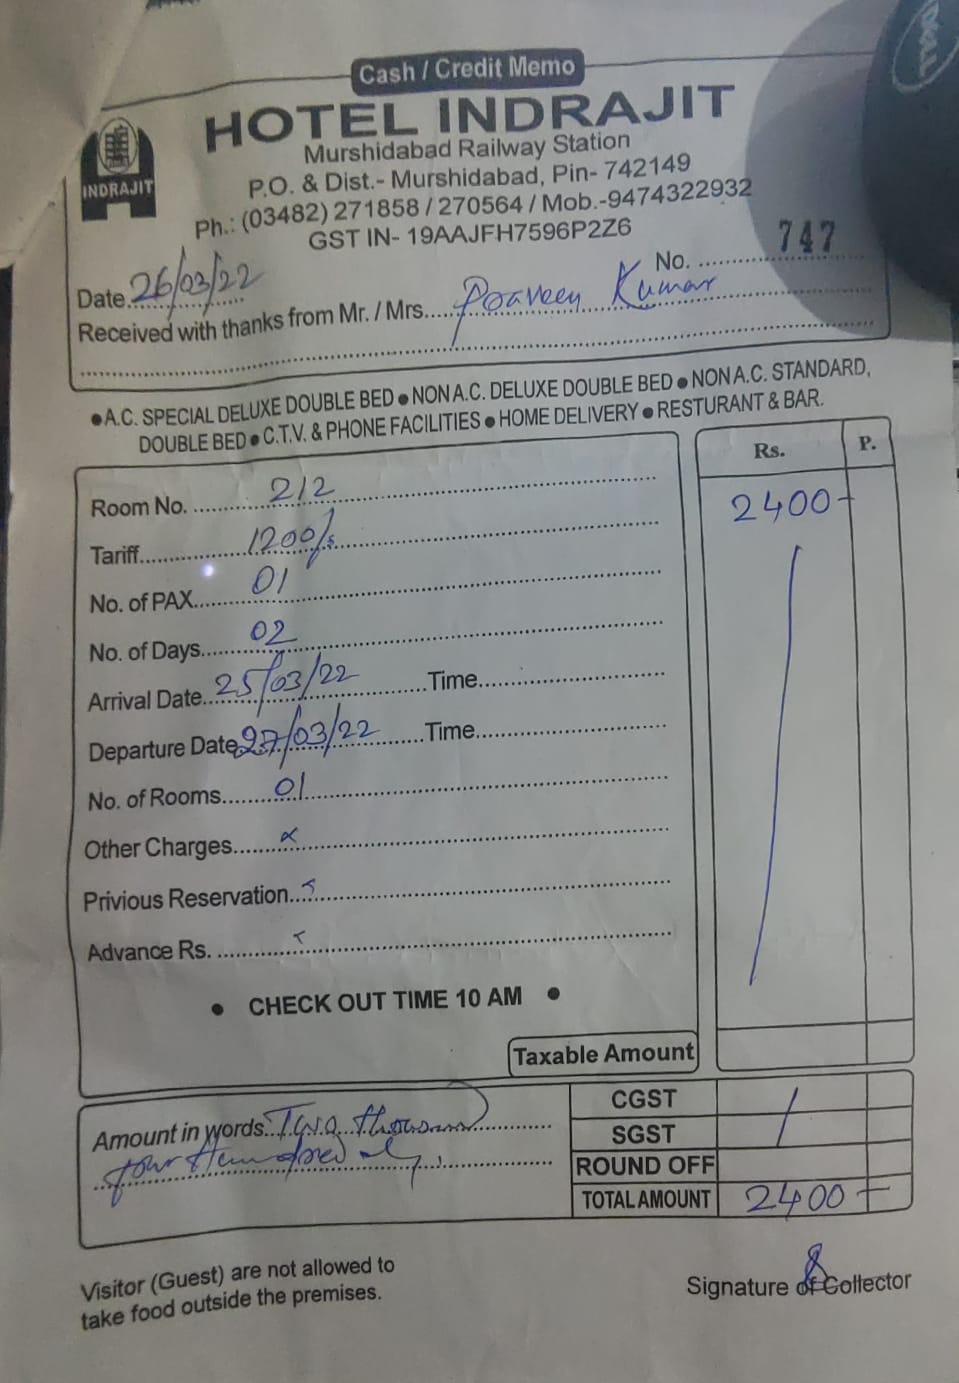 Cash / Credit Memo
HOTEL INDRAJIT
INDRAJIT
Murshidabad Railway Station
P.O. & Dist.- Murshidabad, Pin- 742149
Ph.: (03482) 271858 / 270564 / Mob.-9474322932
GST IN- 19AAJFH7596P2Z6
No. 747
Date 26/03/22
Received with thanks from Mr. / Mrs. Praveen Kumar
● A.C. SPECIAL DELUXE DOUBLE BED ● NON A.C. DELUXE DOUBLE BED ● NON A.C. STANDARD,
DOUBLE BED ● C.T.V. & PHONE FACILITIES ● HOME DELIVERY ● RESTURANT & BAR.
Rs. P.
Room No. 212 2400-
Tariff 1200/-
No. of PAX 01
No. of Days 02
Arrival Date 25/03/22 Time
Departure Date 27/03/22 Time
No. of Rooms 01
Other Charges
Privious Reservation
Advance Rs.
● CHECK OUT TIME 10 AM ●
Taxable Amount
CGST
Amount in words Two thousand
SGST
four Hundred only.
ROUND OFF
TOTAL AMOUNT 2400-
Visitor (Guest) are not allowed to
take food outside the premises.
Signature of Collector
DELL